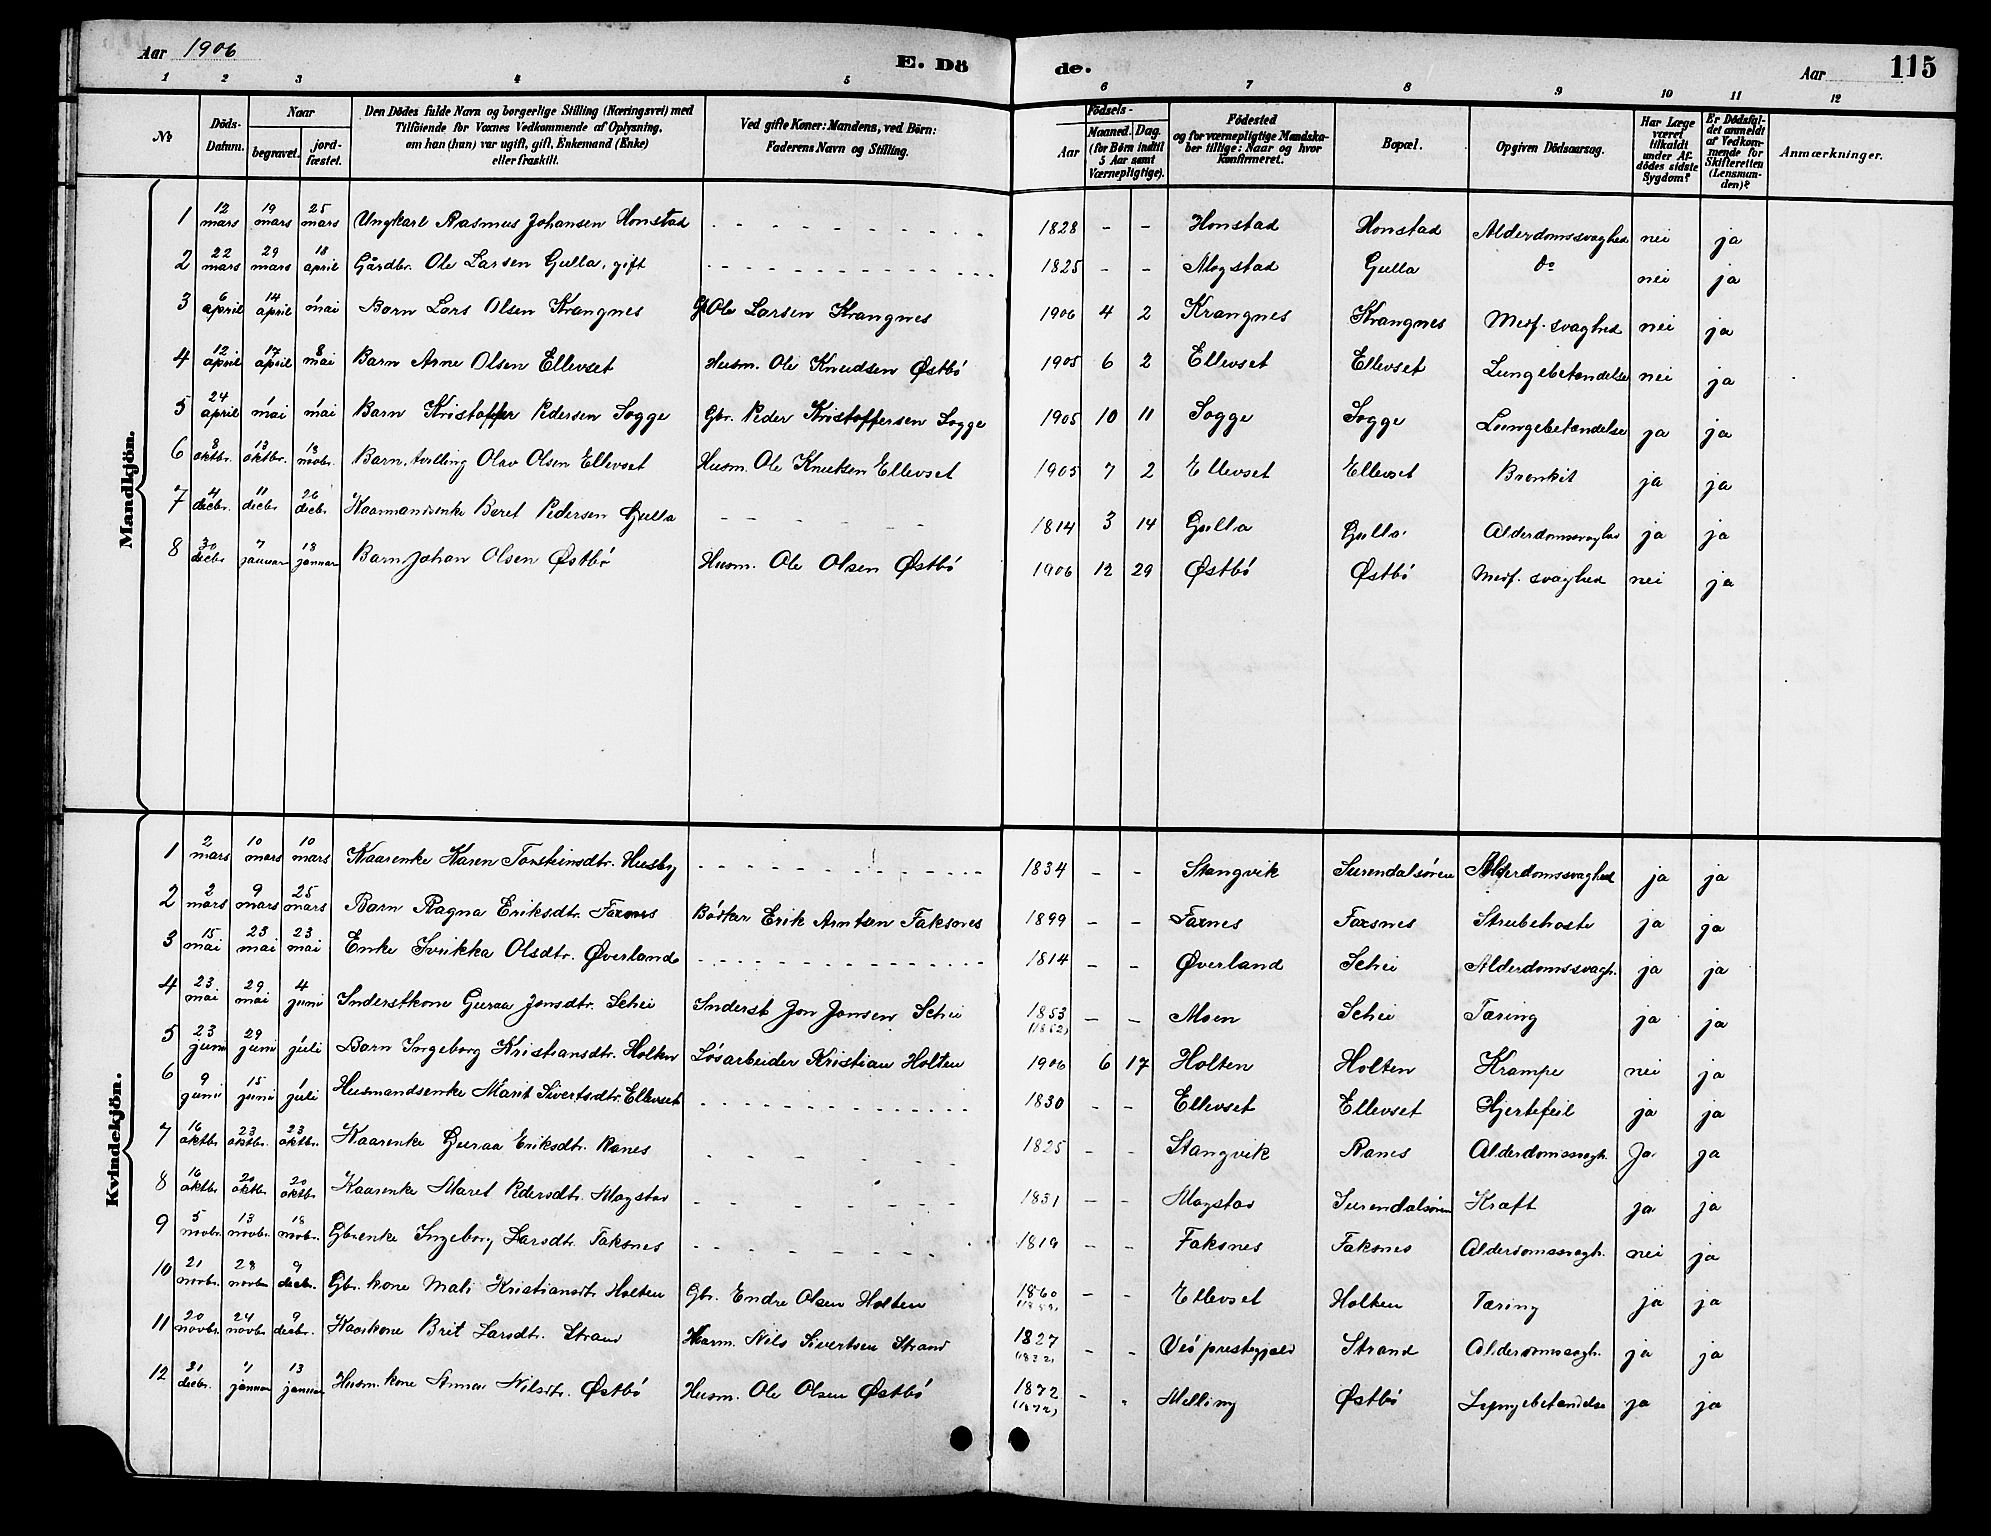 Aar 1906 E. Dö de. Aar 115
1 2 3 4 5 6 7 8 9 10 11 12
No
Döds-Datum.
Naar
begravet.
jord-fæstet.
Den Dödes fulde Navn og borgerlige Stilling (Næringsvei) med
Tilföiende for Voxnes Vedkommende af Oplysning,
om han (hun) var ugift, gift, Enkemand (Enke)
eller fraskilt.
Ved gifte Koner: Mandens, ved Börn:
Faderens Navn og Stilling.
Födsels-
Aar
Maaned. Dag.
(for Börn indtil
5 Aar samt
Værnepligtige).
Födested
og for værnepligtige Mandska-
ber tillige: Naar og hvor
Konfirmeret.
Bopæl.
Opgiven Dödsaarsag.
Har Læge
været
tilkaldt
under Af-
dödes sidste
Sygdom?
Er Dödsfal-
det anmeldt
af Vedkom-
mende for
Skifteretten
(Lensman-
den)?
Anmærkninger.
Mandkjön.
1 12 mars 19 mars 25 mars Ungkarl Rasmus Johansen Honstad - - - 1828 - - Honstad Honstad Alderdomssvaghed nei ja
2 22 mars 29 mars 18 april Gårdbr. Ole Larsen Gulla, gift - - - 1825 - - Mogstad Gulla do nei ja
3 6 april 14 april 1 mai Barn Lars Olsen Krangnes G. Ole Larsen Krangnes 1906 4 2 Krangnes Krangnes Medf. svaghed nei ja
4 12 april 17 april 8 mai Barn Arne Olsen Ellevset Husm. Ole Knudsen Østbö 1905 6 2 Ellevset Ellevset Lungebetændelse nei ja
5 24 april 1 mai 1 mai Barn Kristoffer Pedersen Sogge Gbr. Peder Kristoffersen Sogge 1905 10 11 Sogge Sogge Lungebetændelse ja ja
6 8 oktbr. 13 oktbr. 18 novbr. Barn, tvilling Olav Olsen Ellevset Husm. Ole Knutsen Ellevset 1905 7 2 Ellevset Ellevset Bronkit ja ja
7 4 decbr. 11 decbr 26 decbr Kaarmandsenke Beret Pedersen Gulla - - - 1814 3 14 Gulla Gulla Alderdomssvaghed ja ja
8 30 decbr 7 januar 13 januar Barn Johan Olsen Østbö Husm. Ole Olsen Østbö 1906 12 29 Østbö Østbö Medf. svaghed nei ja
Kvindekjön.
1 2 mars 10 mars 10 mars Kaarenke Karen Torsteinsdtr. Husby - - - 1834 - - Stangvik Surendalsören Alderdomssvaghed ja ja
2 2 mars 9 mars 25 mars Barn Ragna Eriksdtr. Faxnes Bödker Erik Arntsen Faksnes 1899 - - Faxnes Faxsnes Strubehoste ja ja
3 15 mai 23 mai 23 mai Enke Svikka Olsdtr. Øverland - - - 1814 - - Øverland Schei Alderdomssvagh. ja ja
4 23 mai 29 mai 4 juni Inderstkone Guraa Jonsdtr. Schei Inderst Jon Jonsen Schei 1853 (1852) - - Moen Schei Tæring ja ja
5 23 juni 29 juni 1 juli Barn Ingeborg Kristiansdtr. Holten Lösarbeider Kristian Holten 1906 6 17 Holten Holten Krampe nei ja
6 9 juni 15 juni 1 juli Husmandsenke Marit Sivertsdtr. Ellevset - - - 1830 - - Ellevset Ellevset Hjertefeil ja ja
7 16 oktbr. 23 oktbr. 23 oktbr. Kaarenke Guraa Eriksdtr. Ranes - - - 1825 - - Stangvik Ranes Alderdomssvagh. Ja ja
8 16 oktbr. 20 oktbr. 20 oktbr. Kaarenke Maret Pedersdtr. Mogstad - - - 1831 - - Mogstad Surendalsören Kræft ja ja
9 5 novbr. 13 novbr. 18 novbr. Gbrenke Ingeborg Larsdtr. Faksnes - - - 1819 - - Faksnes Faksnes Alderdomssvagh. nei ja
10 21 novbr. 28 novbr 9 decbr. Gbr. kone Mali Kristiansdtr Holten Gbr. Endre Olsen Holten 1860 (1859) - - Ellevset Holten Tæring ja ja
11 20 novbr. 24 novbr 9 decbr. Kaarkone Brit Larsdtr. Strand Kaarm. Nils Sivertsen Strand 1827 (1832) - - Veö prestegjeld Strand Alderdomssvagh. ja ja
12 31 decbr. 7 januar 13 januar Husm. kone Anna Nilsdtr. Østbö Husm. Ole Olsen Østbö 1872 (1872) - - Melling Østbö Lungebetændelse ja ja